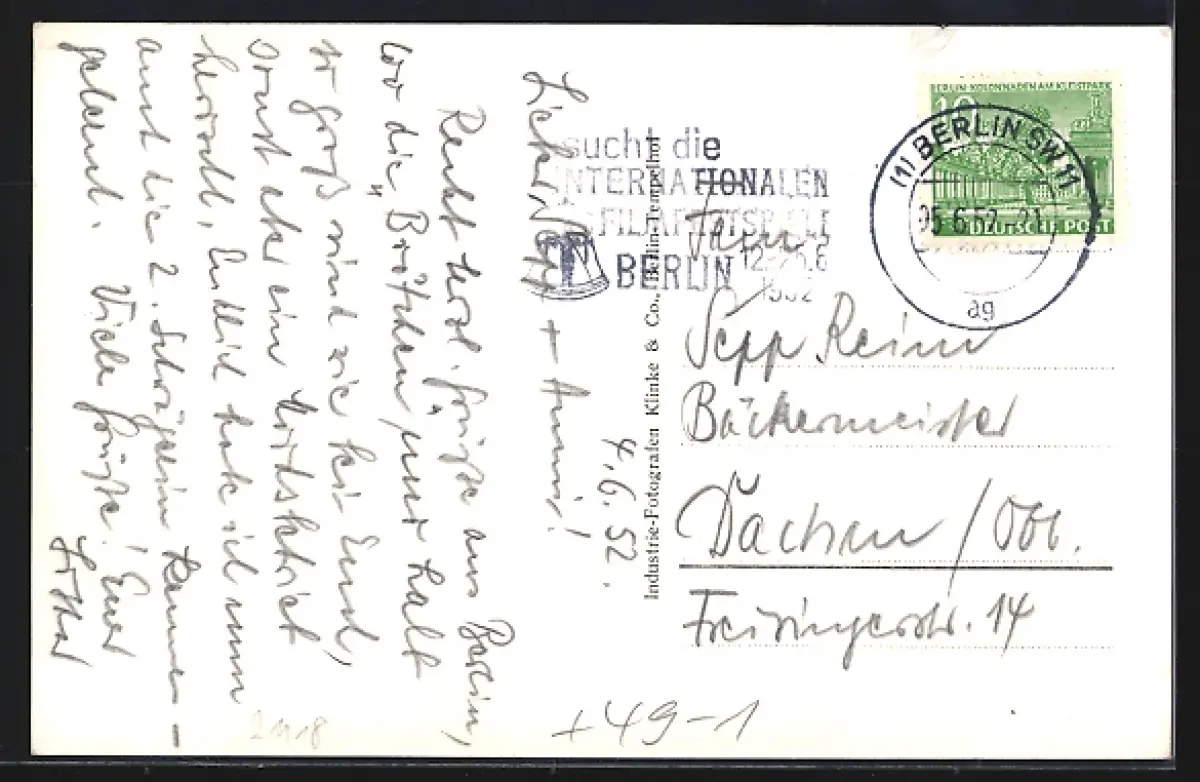 4.6.52.
Lieber Sepp + Anni!
Recht herzl. Grüße aus Berlin,
wo die "Brötchen" nur halb
so groß sind wie bei Euch,
sonst aber ein
herrscht. Endlich habe ich nun
auch die 2. Schwägerin kennen-
gelernt. Viele Grüße! Euer
Lothar
Industrie-Fotografen Klinke & Co., Berlin-Tempelhof
sucht die
INTERNATIONALEN
FILMFESTSPIELE
BERLIN 12.-25.6
1952
BERLIN·KOLONNADEN AM KLEISTPARK
10
DEUTSCHE POST
(1) BERLIN SW 11
05.6.52.-21
ag
Fam.
Sepp Reim
Bäckermeister
Dachau / Obb.
Freisingerstr. 14
+49-1
2118